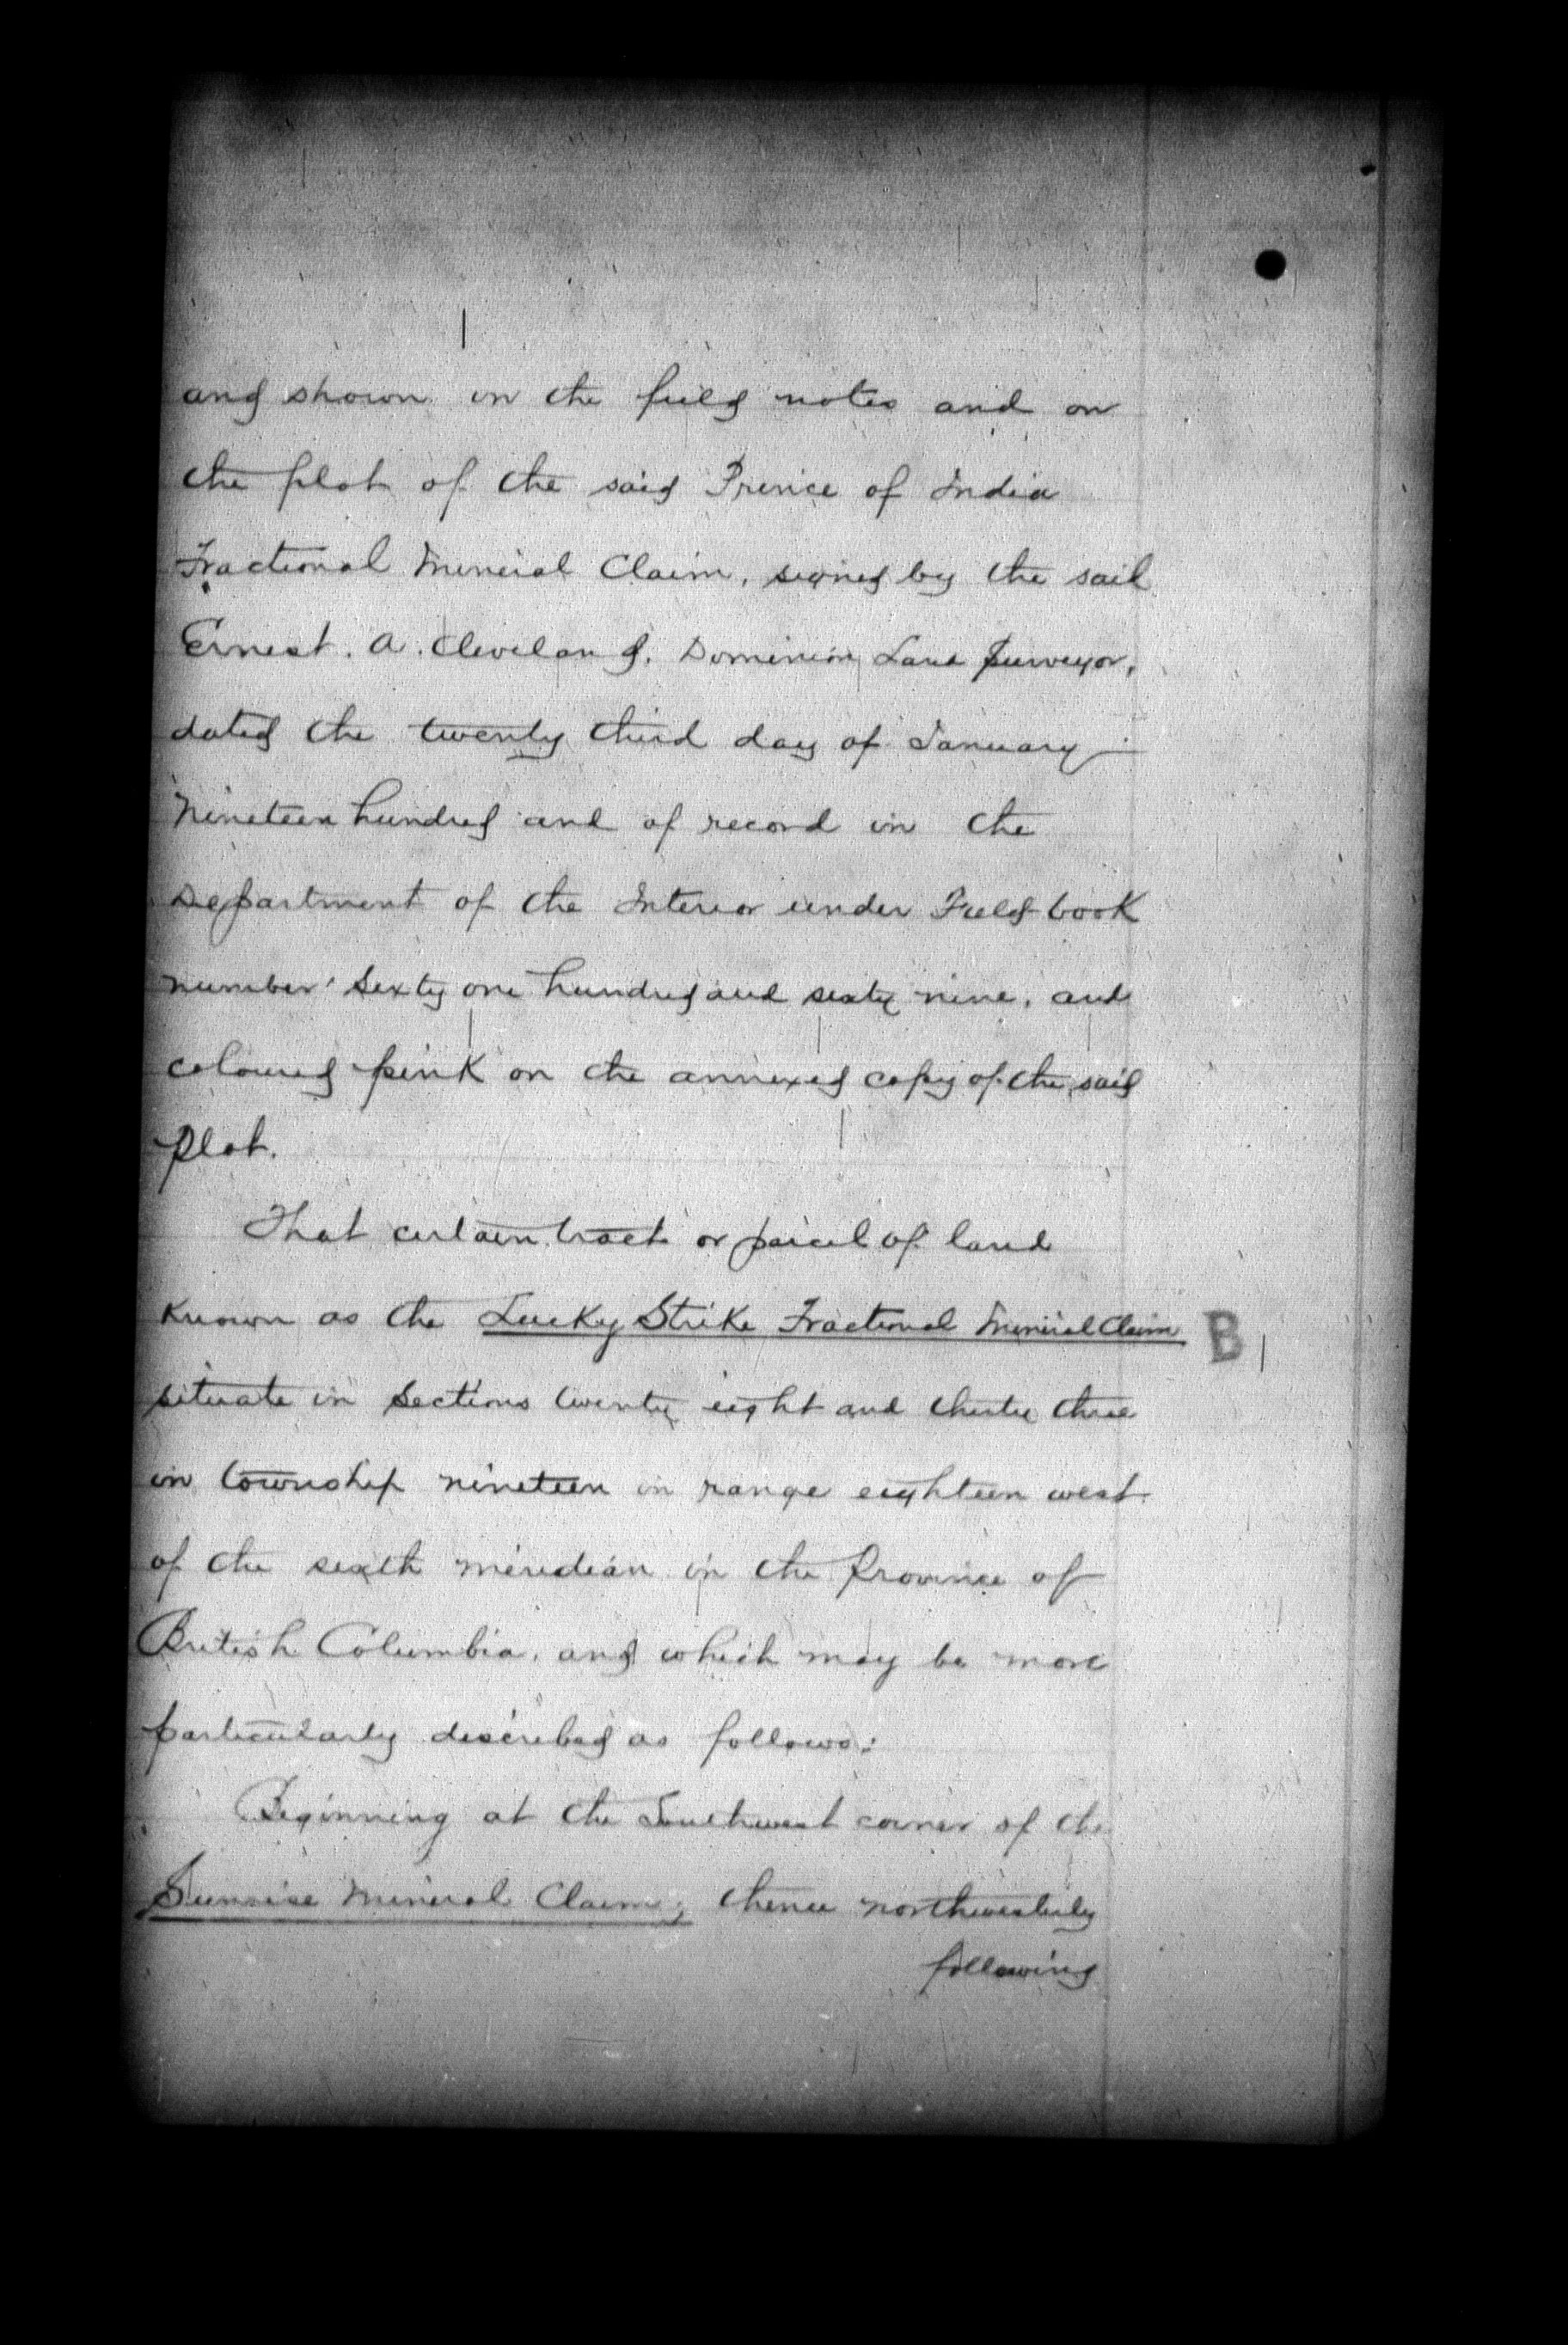 and shown in the field notes and on
the plot of the said Prince of India
Fractional Mineral Claim, signed by the said
Ernest. A. Cleveland, Dominion Land Surveyor,
dated the twenty third day of January
nineteen hundred and of record in the
Department of the Interior under Field book
number sixty one hundred and sixty nine, and
coloured pink on the annexed copy of the said
plot.
That certain tract or parcel of land
known as the Lucky Strike Fractional Mineral Claim
B
situate in Sections twenty eight and thirty three
in township nineteen in range eighteen west
of the sixth meridian in the Province of
British Columbia, and which may be more
particularly described as follows:
Beginning at the Southwest corner of the
Sunrise Mineral Claim; thence northwesterly
following